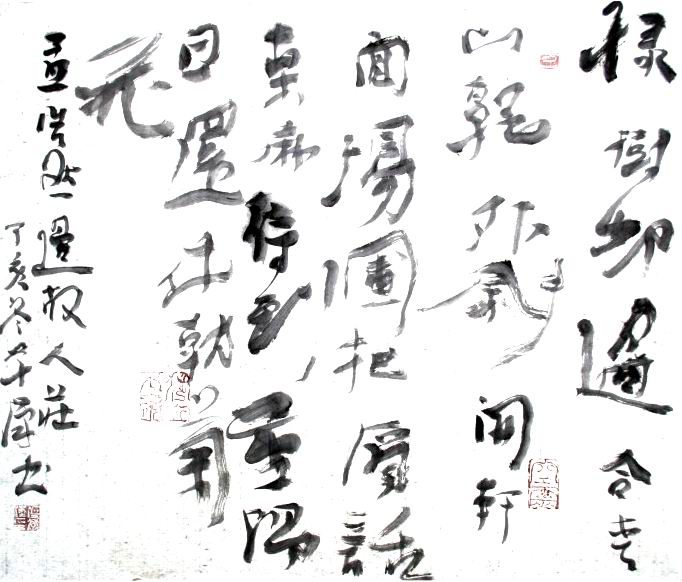 綠樹邨邊合青
山郭外斜開軒
面場圃把酒話
桑麻待到重陽
日還來就菊
花
孟浩然過故人莊
丁亥冬书